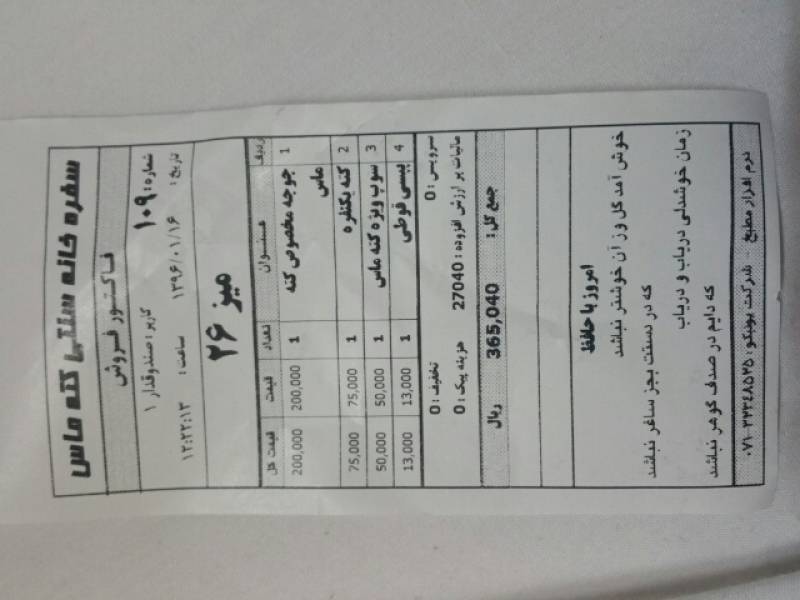 سفره خانه سنتی کته ماس
فاکتور فروش
شماره: ۱۰۹ کاربر: صندوقدار ۱
تاریخ: ۱۳۹۶/۰۱/۱۶ ساعت: ۱۲:۲۲:۱۳
میز ۲۶
ردیف عنوان تعداد قیمت قیمت کل
1 جوجه مخصوص کته ماس 1 200,000 200,000
2 کته یکنفره 1 75,000 75,000
3 سوپ ویژه کته ماس 1 50,000 50,000
4 پپسی قوطی 1 13,000 13,000
سرویس: 0 تخفیف: 0
مالیات بر ارزش افزوده: 27040 هزینه پیک: 0
جمع کل: 365,040 ریال
امروز با حافظ
خوش آمد گل وز آن خوشتر نباشد
که در دستت بجز ساغر نباشد
زمان خوشدلی دریاب و دریاب
که دایم در صدف گوهر نباشد
نرم افزار مطبخ - شرکت یونیکو: ۰۷۱-۳۲۳۴۸۵۲۵